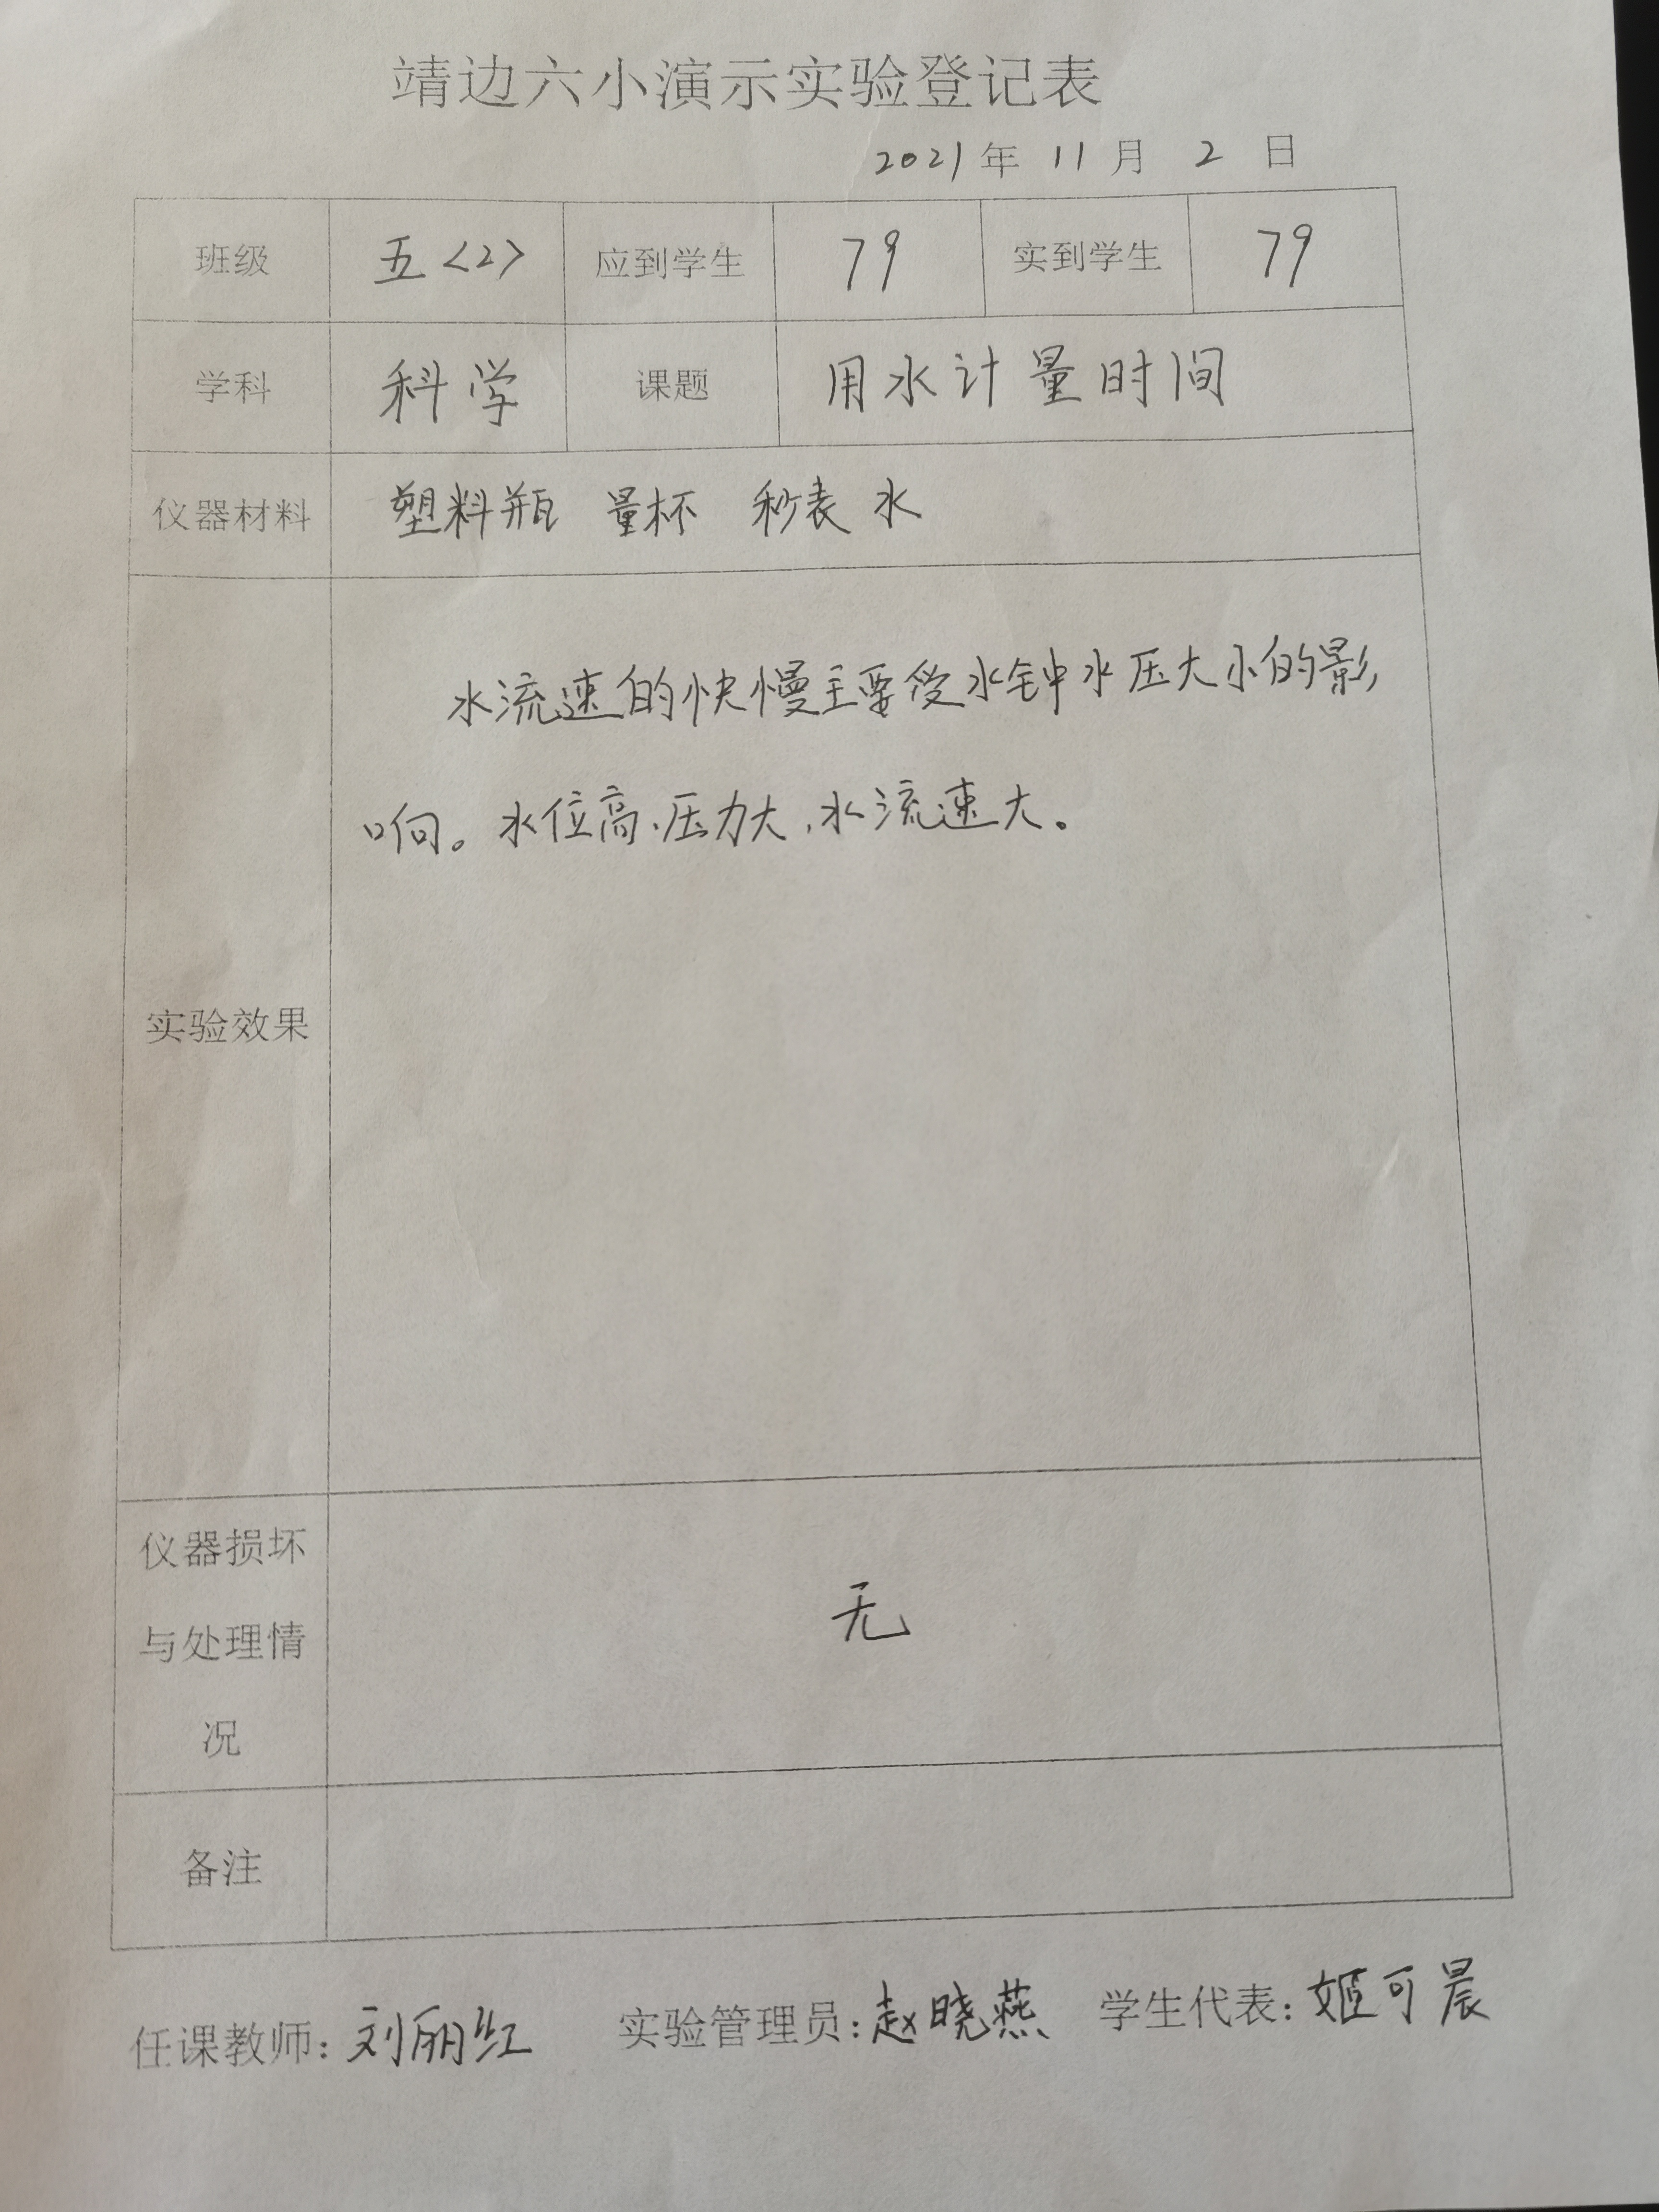 靖边六小演示实验登记表
2021年 11月 2 日
班级 五<2> 应到学生 79 实到学生 79
学科 科学 课题 用水计量时间
仪器材料 塑料瓶 量杯 秒表 水
水流速的快慢主要受水钟水压大小的影
响。水位高,压力大,水流速大。
实验效果
仪器损坏
与处理情
况
无
备注
任课教师:刘丽红 实验管理员:赵晓燕 学生代表:姬可晨